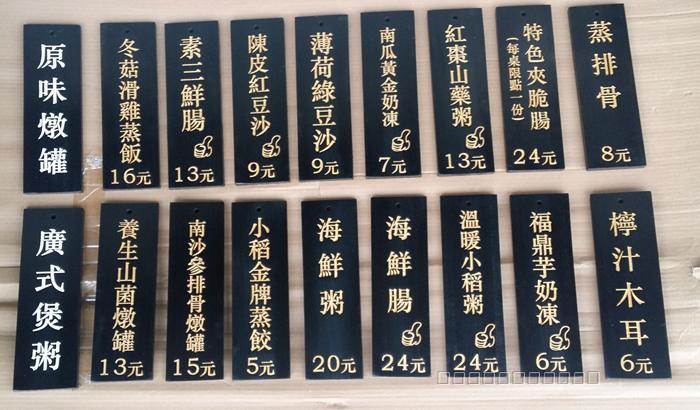 原味燉罐
冬菇滑雞蒸飯
16元
素三鮮腸
13元
陳皮紅豆沙
9元
薄荷綠豆沙
9元
南瓜黃金奶凍
7元
紅棗山藥粥
13元
特色夾脆腸
(每桌限點一份)
24元
蒸排骨
8元
廣式煲粥
養生山菌燉罐
13元
南沙參排骨燉罐
15元
小稻金牌蒸餃
5元
海鮮粥
20元
海鮮腸
24元
溫暖小稻粥
24元
福鼎芋奶凍
6元
檸汁木耳
6元